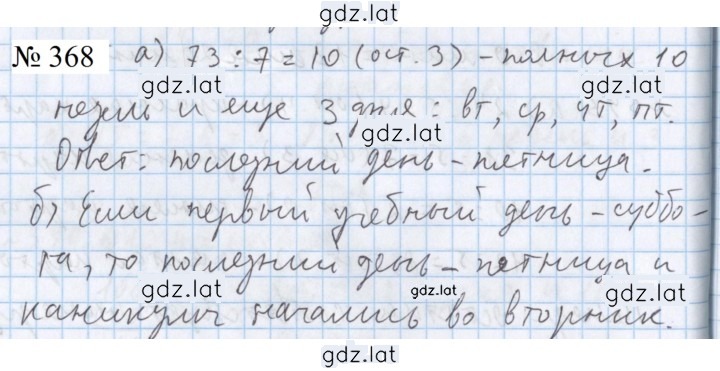 gdz.lat
№ 368 а) 73 : 7 = 10 (ост. 3) – полных 10
gdz.lat gdz.lat
недель и еще 3 дня : вт, ср, чт, пт.
gdz.lat
Ответ: последний день – пятница.
gdz.lat gdz.lat
б) Если первый учебный день – суббо-
gdz.lat
та, то последний день – пятница и
gdz.lat gdz.lat gdz.lat
каникулы начались во вторник.
gdz.lat